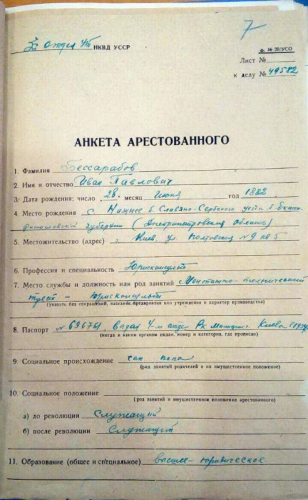 7
3 Отдел УГБ НКВД УССР
ф. № 20/УСО
Лист №
к делу № 49582
АНКЕТА АРЕСТОВАННОГО
1. Фамилия Бессарабов
2. Имя и отчество Иван Павлович
3. Дата рождения: число 28. месяц Июня год 1882
4. Место рождения с. Нижнее б. Славяно-Сербского уезда б. Екате-
ринославской губернии (Днепропетровская область)
5. Местожительство (адрес) г. Киев ул. № 9 кв 5
6. Профессия и специальность Юрисконсульт
7. Место службы и должность или род занятий
трест — Юрисконсульт
(указать без сокращений, название предприятия или учреждения и характер производства)
8. Паспорт № 696761. выдан 4-м Рк милиции. Киева
(когда и каким органом выдан, номер и категория, где прописан)
9. Социальное происхождение сын попа
(род занятий родителей и их имущественное положение)
10. Социальное положение
(род занятий и имущественное положение арестованного)
а) до революции Служащий
б) после революции Служащий
11. Образование (общее и специальное) высшее — юридическое